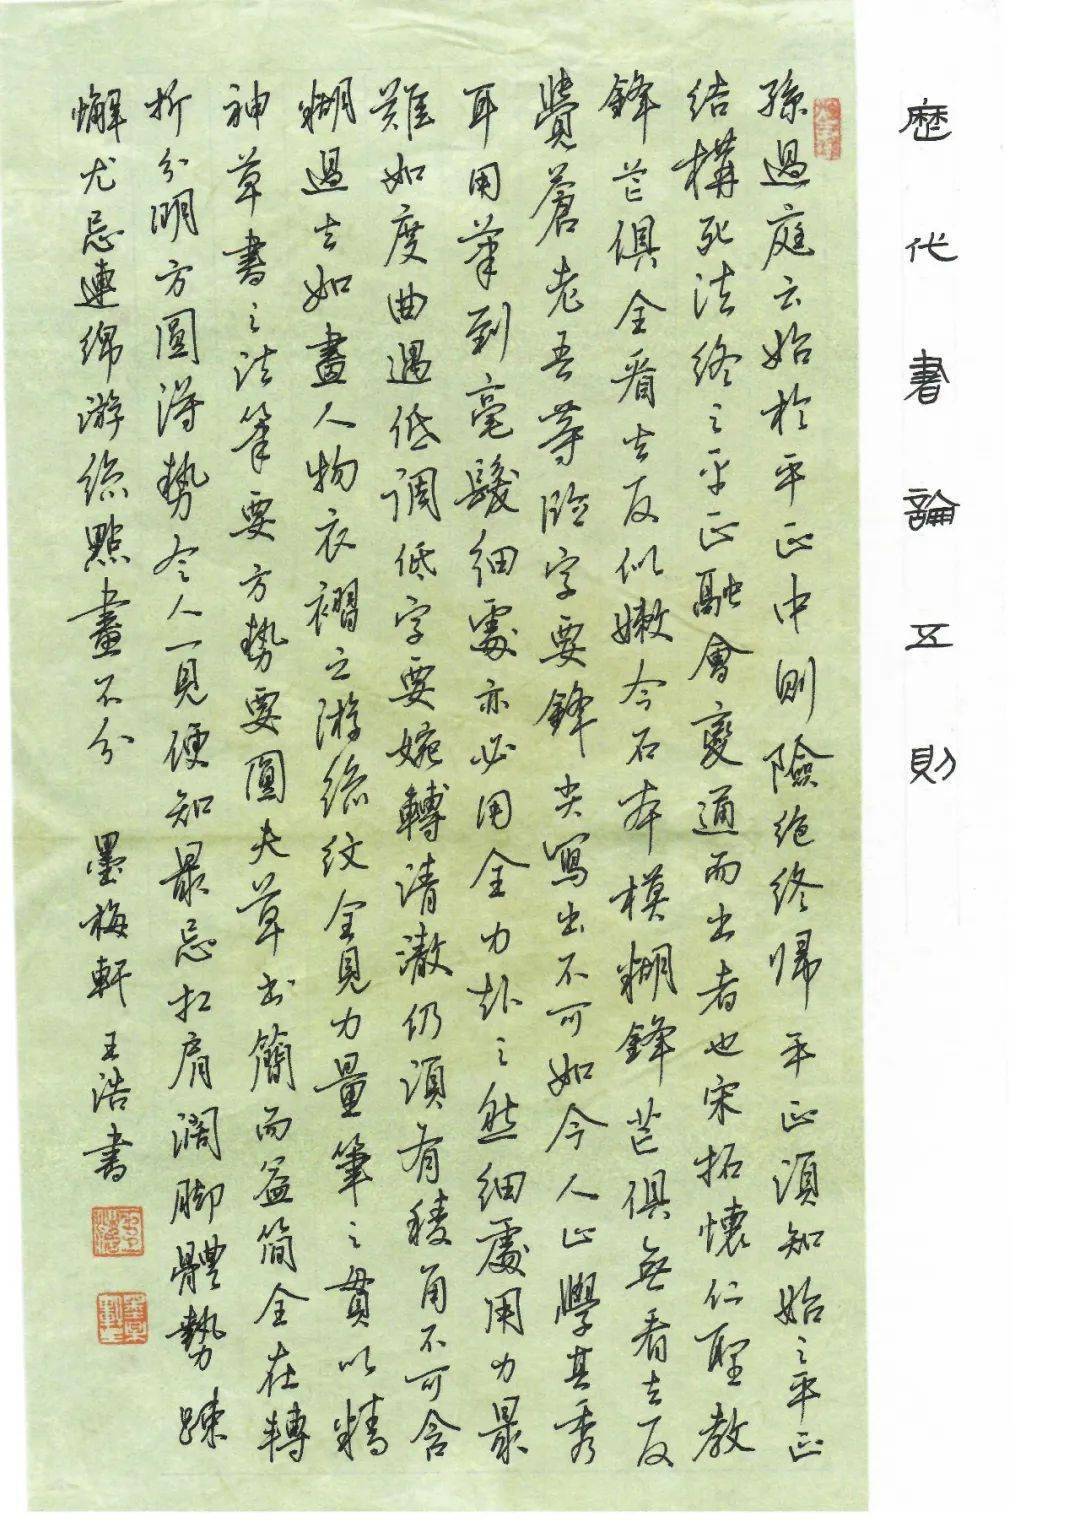 歷代書論五則
孫過庭云始於平正中則險絕終歸平正須知始之平正
結構死法終之平正融會變通而出者也宋拓懷仁聖教
鋒芒俱全看去反似嫩今石本模糊鋒芒俱無看去反
覺蒼老吾等臨字要鋒尖寫出不可如今人止學其秀
耳用筆到毫髮細處亦必用全力赴之然細處用力最
難如度曲遇低調低字要婉轉清澈仍須有稜角不可含
糊過去如畫人物衣褶之游絲紋全見力量筆之貫以精
神草書之法筆要方勢要圓夫草书簡而益簡全在轉
折分明方圓得勢令人一見便知最忌扛肩濶脚體勢踈
懈尤忌連綿游絲點畫不分 墨梅軒王浩書